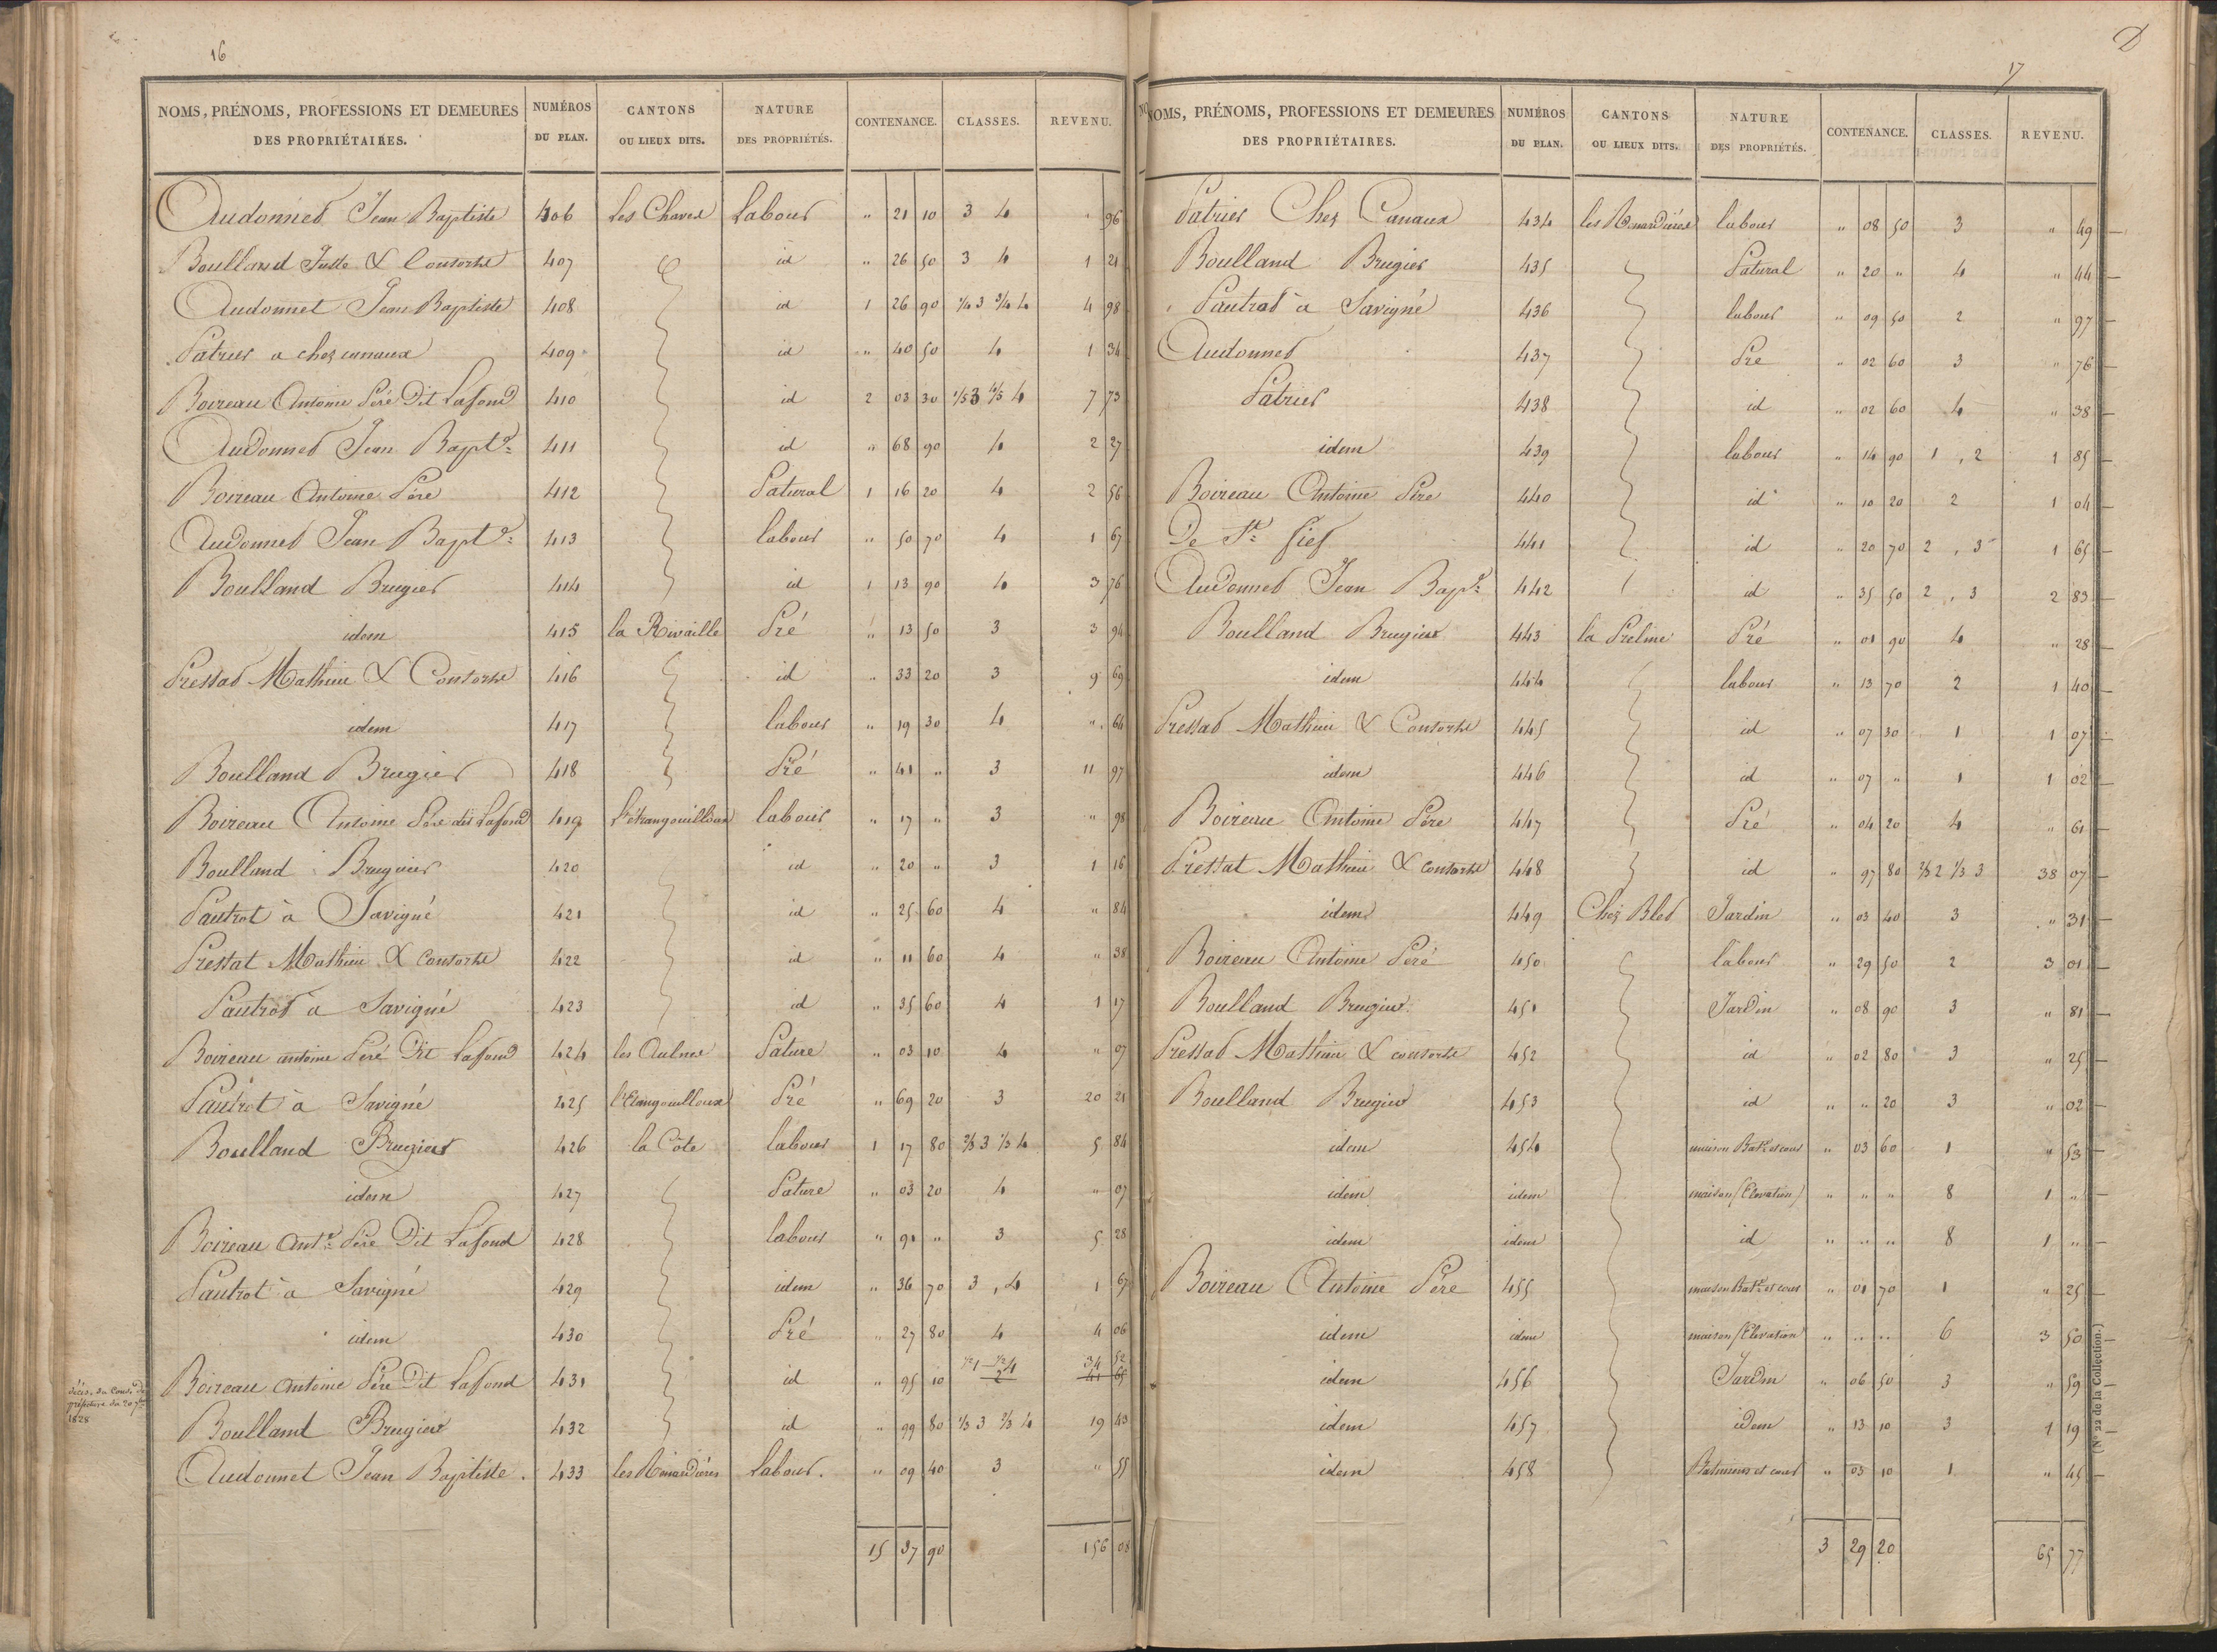 16
NOMS, PRÉNOMS, PROFESSIONS ET DEMEURES DES PROPRIÉTAIRES. NUMÉROS DU PLAN. CANTONS OU LIEUX DITS. NATURE DES PROPRIÉTÉS. CONTENANCE. CLASSES. REVENU.
Audonnet Jean Baptiste 406 Les Chaves Labour " 21 10 3 4 " 96
Boulland Juste & Consorts 407 id " 26 50 3 4 1 21
Audonnet Jean Baptiste 408 id 1 26 90 1/4 3 3/4 4 4 98
Patrier a chez canaux 409 id " 40 50 4 1 34
Boireau Antoine Pere Dit Lafond 410 id 2 03 30 1/5 3 4/5 4 7 73
Audonnet Jean Bapte 411 id " 68 90 4 2 27
Boireau Antoine Père 412 Patural 1 16 20 4 2 56
Audonnet Jean Bapte 413 labour " 50 70 4 1 67
Boulland Brugier 414 id 1 13 90 4 3 76
idem 415 la Rivaille Pré " 13 50 3 3 94
Pressat Mathieu & Consorts 416 id " 33 20 3 9 69
idem 417 labour " 19 30 4 " 64
Boulland Brugier 418 Pré " 41 " 3 11 97
Boireau Antoine Père dit Lafond 419 l'étrangouilloux labour " 17 " 3 " 98
Boulland Brugier 420 id " 20 " 3 1 16
Pautrot à Savigné 421 id " 25 60 4 " 84
Prestat Mathieu & Consorts 422 id " 11 60 4 " 38
Pautrot a Savigné 423 id " 35 60 4 1 17
Boireau antoine Peré Dit Lafond 424 les Aulnes Pature " 03 10 4 " 07
Pautrot à Savigné 425 Pré " 69 20 3 20 21
Boulland Brugier 426 la Côte labour 1 17 80 2/3 3 1/3 4 5 84
idem 427 Pature " 03 20 4 " 07
Boireau Ante Père Dit Lafond 428 labour " 91 " 3 5 28
Pautrot à Savigné 429 idem " 36 70 3, 4 1 67
idem 430 Pré " 27 80 4 4 06
décis. du Cons. de préfecture du 20 1828
Boireau Antoine Père Dit Lafond 431 id " 95 10 34 52
Boulland Brugier 432 id " 99 80 1/3 3 2/3 4 19 43
Audonnet Jean Baptiste. 433 les Renaudières labour. " 09 40 3 " 55
15 37 90 156 08
17
NOMS, PRÉNOMS, PROFESSIONS ET DEMEURES DES PROPRIÉTAIRES. NUMÉROS DU PLAN. CANTONS OU LIEUX DITS. NATURE DES PROPRIÉTÉS. CONTENANCE. CLASSES. REVENU.
Patrier Chez Canaux 434 les Renaudières labour " 08 50 3 " 49
Boulland Brugier 435 Patural " 20 " 4 " 44
Pautrot à Savigné 436 labour " 09 50 2 " 97
Audonnet 437 Pré " 02 60 3 " 76
Patrier 438 id " 02 60 4 " 38
idem 439 labour " 14 90 1, 2 1 85
Boireau Antoine Père 440 id " 10 20 2 1 04
De St fief 441 id " 20 70 2, 3 1 65
Audonnet Jean Bapte 442 id " 35 50 2, 3 2 83
Boulland Brugier 443 la Preline Pré " 01 90 4 " 28
idem 444 labour " 13 70 2 1 40
Pressat Mathieu & Consorts 445 id " 07 30 1 1 07
idem 446 id " 07 " 1 1 02
Boireau Antoine Père 447 Pré " 04 20 4 " 61
Pressat Mathieu & consorts 448 id " 97 80 2/3 2 1/3 3 38 07
idem 449 Chez Blet Jardin " 03 40 3 " 31
Boireau Antoine Peré 450 labour " 29 50 2 3 01
Boulland Brugier 451 Jardin " 08 90 3 " 81
Pressat Mathieu & consorts 452 id " 02 80 3 " 25
Boulland Brugier 453 id " " 20 3 " 02
idem 454 maison Bat. et cour " 03 60 1 " 53
idem idem maison (Elevation) " " " 8 1 "
idem idem id " " " 8 1 "
Boireau Antoine Père 455 maison Bat. et cour " 01 70 1 " 25
idem idem maison (Elevation) " " " 6 3 50
idem 456 Jardin " 06 50 3 " 59
idem 457 idem " 13 10 3 1 19
idem 458 Batimens et cour " 03 10 1 " 45
3 29 20 65 77
(N° 22 de la Collection.)